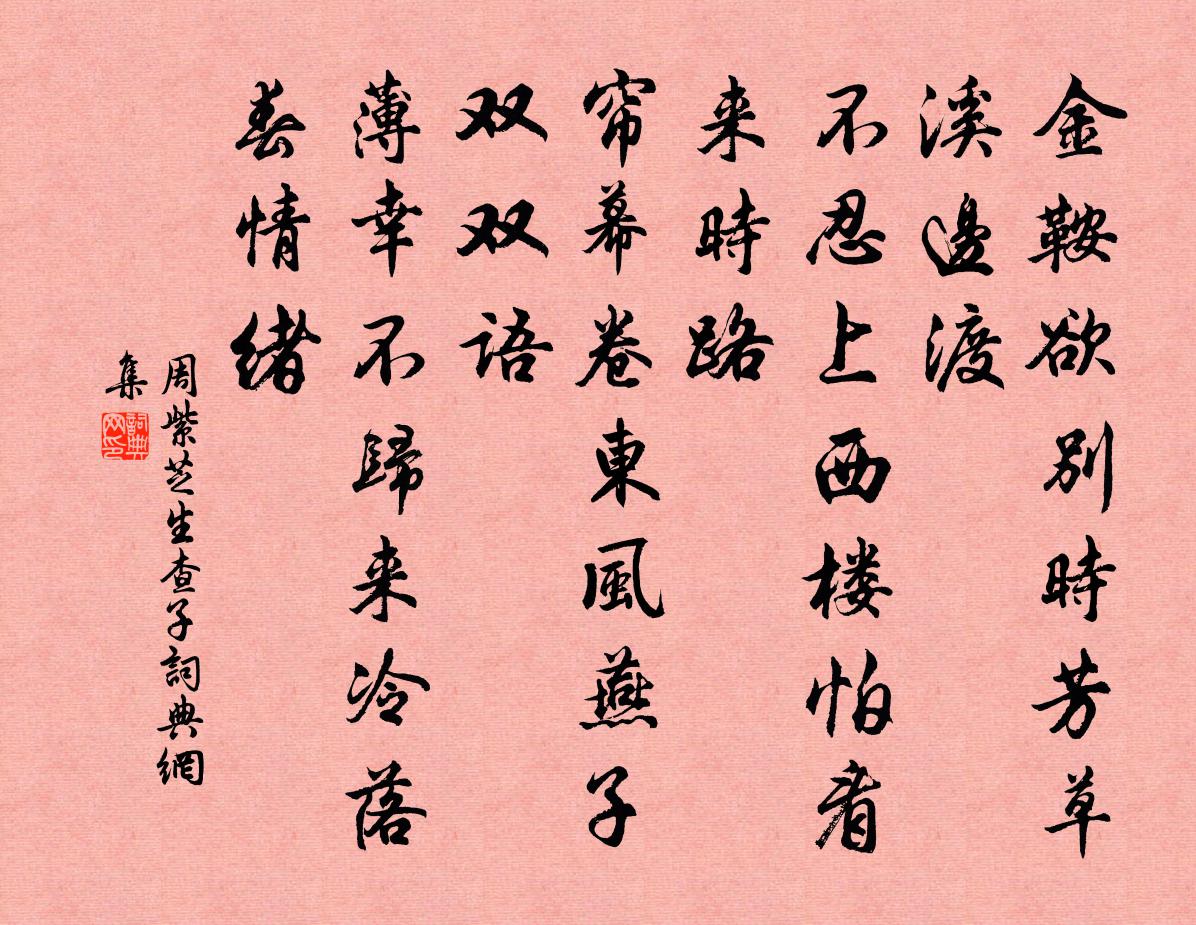 金鞍欲别時芳草
溪邊渡
不忍上西楼怕看
来時路
帘幕卷東風燕子
双双语
薄幸不歸来冷落
春情绪
周紫芝生查子詞典網
集
詞典
网印